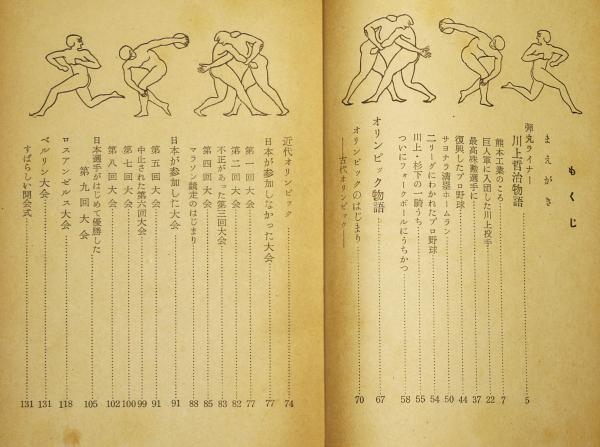 もくじ
まえがき
弾丸ライナー
川上哲治物語 5
熊本工業のころ 7
巨人軍に入団した川上投手 22
最高殊勲選手に 37
復興したプロ野球 44
サヨナラ満塁ホームラン 50
二リーグにわかれたプロ野球 54
川上・杉下の一騎うち 55
ついにフォークボールにうちかつ 58
オリンピック物語 67
オリンピックのはじまり 70
――古代オリンピック――
近代オリンピック 74
日本が参加しなかった大会 77
第一回大会 77
第二回大会 82
不正があった第三回大会 83
第四回大会 85
マラソン競走のはじまり 88
日本が参加した大会 91
第五回大会 91
中止された第六回大会 99
第七回大会 100
第八回大会 102
日本選手がはじめて優勝した
第九回大会 105
ロスアンゼルス大会 118
ベルリン大会 131
すばらしい開会式 131